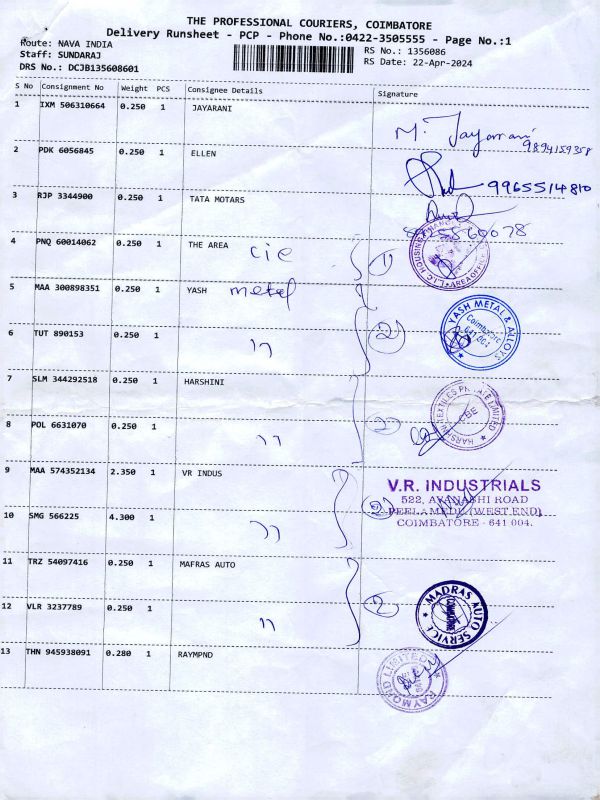 THE PROFESSIONAL COURIERS, COIMBATORE
Delivery Runsheet - PCP - Phone No.:0422-3505555 - Page No.:1
Route: NAVA INDIA
RS No.: 1356086
Staff: SUNDARAJ
RS Date: 22-Apr-2024
DRS No.: DCJB135608601
S No Consignment No Weight PCS Consignee Details Signature
1 IXM 506310664 0.250 1 JAYARANI
M. Jayarani
9894159358
2 PDK 6056845 0.250 1 ELLEN
9965514810
3 RJP 3344900 0.250 1 TATA MOTARS
4 PNQ 60014062 0.250 1 THE AREA
L.I.C HOUSING FINANCE AREA OFFICE
1
5 MAA 300898351 0.250 1 YASH metal
YASH METAL & ALLOYS
Coimbatore
641 004
6 TUT 890153 0.250 1 " 2
7 SLM 344292518 0.250 1 HARSHINI
HARSHINI TEXTILES PRIVATE LIMITED
CBE
8 POL 6631070 0.250 1 " 2
9 MAA 574352134 2.350 1 VR INDUS
V.R. INDUSTRIALS
522, AVANASHI ROAD
PEELAMEDU (WEST END)
COIMBATORE - 641 004.
10 SMG 566225 4.300 1 " 2
11 TRZ 54097416 0.250 1 MAFRAS AUTO
MADRAS AUTO SERVICE
COIMBATORE
12 VLR 3237789 0.250 1 " 2
13 THN 945938091 0.280 1 RAYMPND
RAYMOND LIMITED